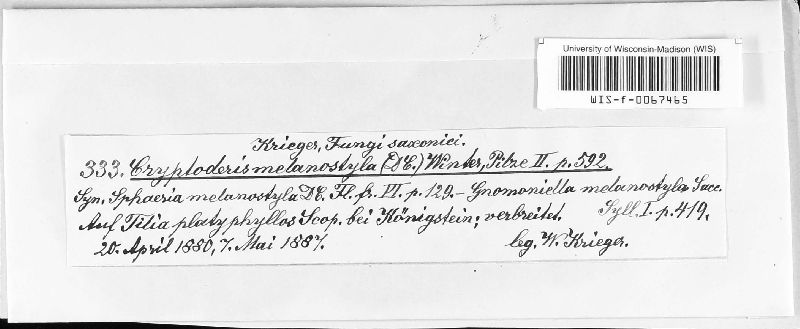 University of Wisconsin-Madison (WIS)
WIS-f-0067465
Krieger, Fungi saxonici.
333. Cryptoderis melanostyla (DC.) Winter, Pilze II. p. 592.
Syn. Sphaeria melanostyla DC. Fl. fr. VI. p. 129. - Gnomoniella melanostyla Sacc.
Syll. I. p. 419.
Auf Tilia platyphyllos Scop. bei Königstein; verbreitet.
20. April 1880, 7. Mai 1887. leg. W. Krieger.